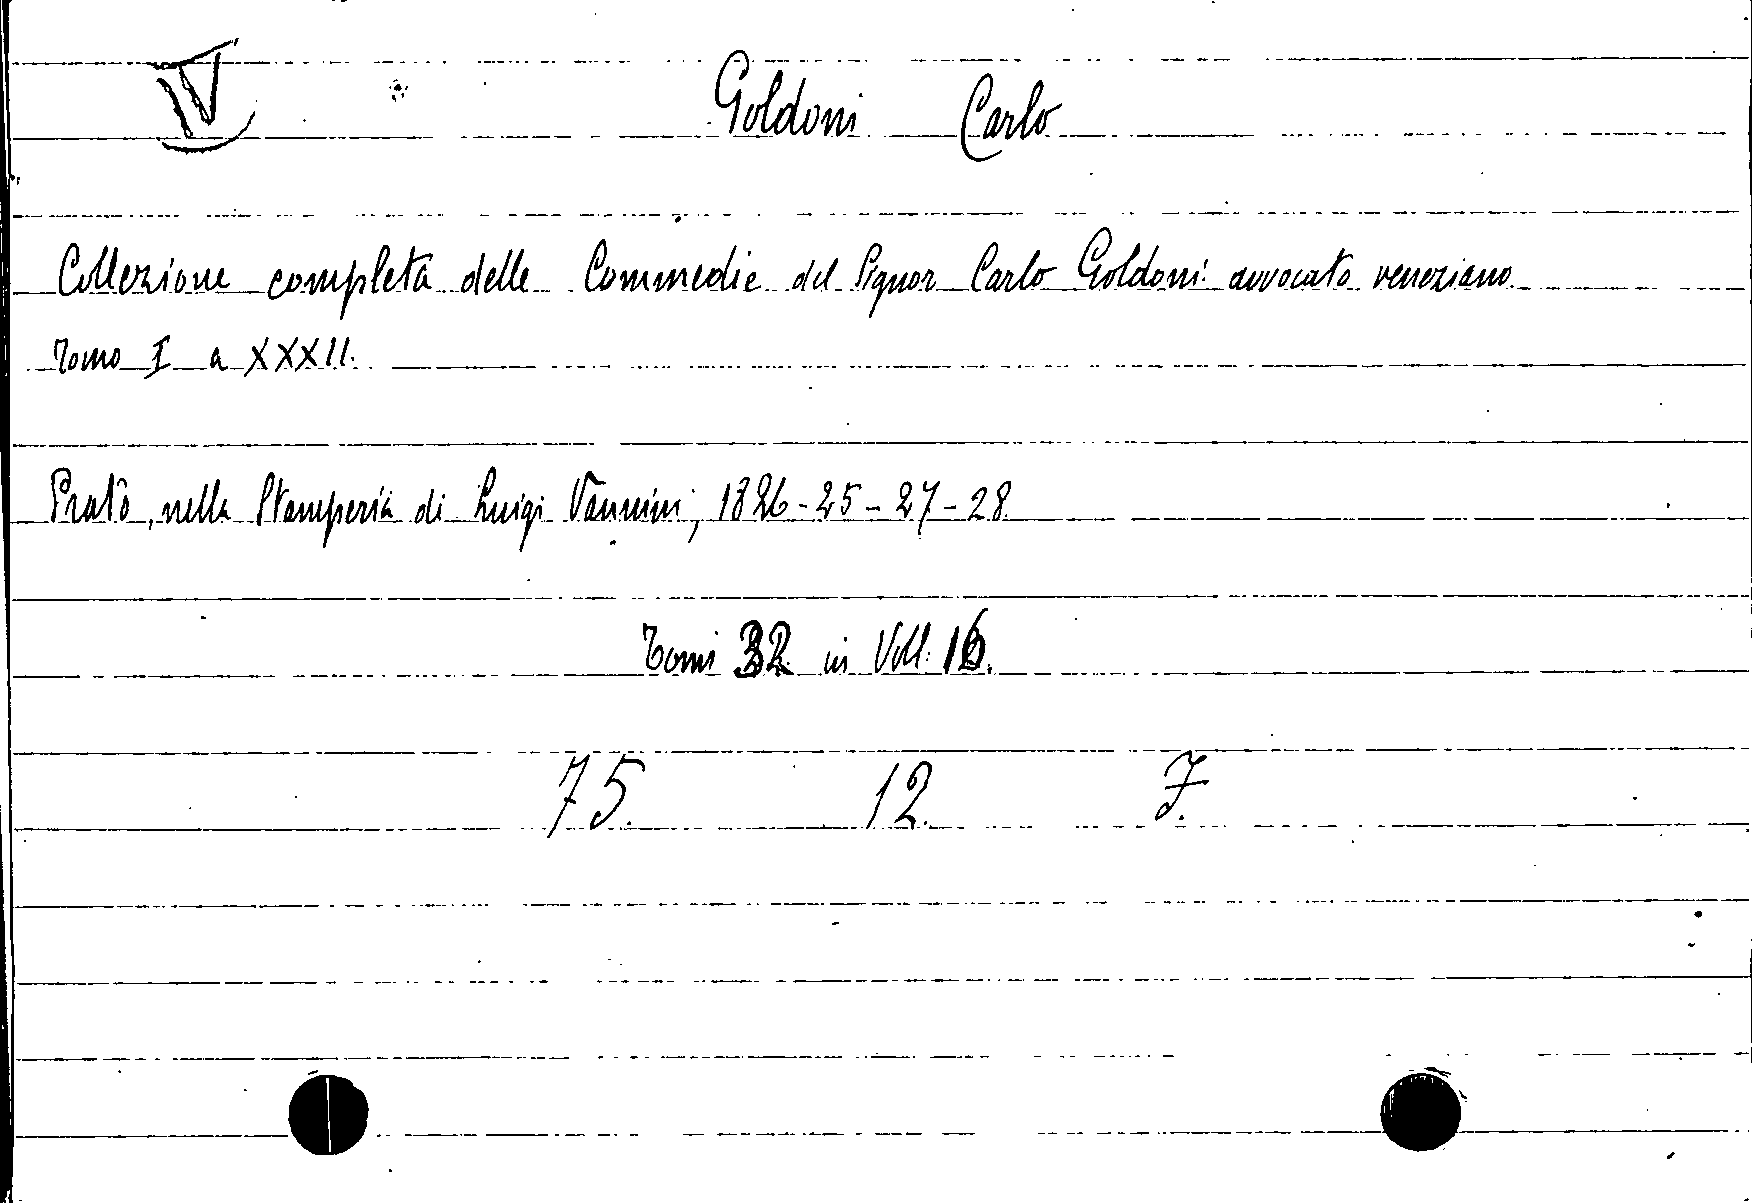 IV Goldoni Carlo
Collezione completa delle Commedie del Signor Carlo Goldoni avvocato veneziano
Tomo I a XXXII.
Prato, nella Stamperia di Luigi Vannini, 1826-25-27-28
Tomi 32 in Voll. 16.
75. 12. 7.